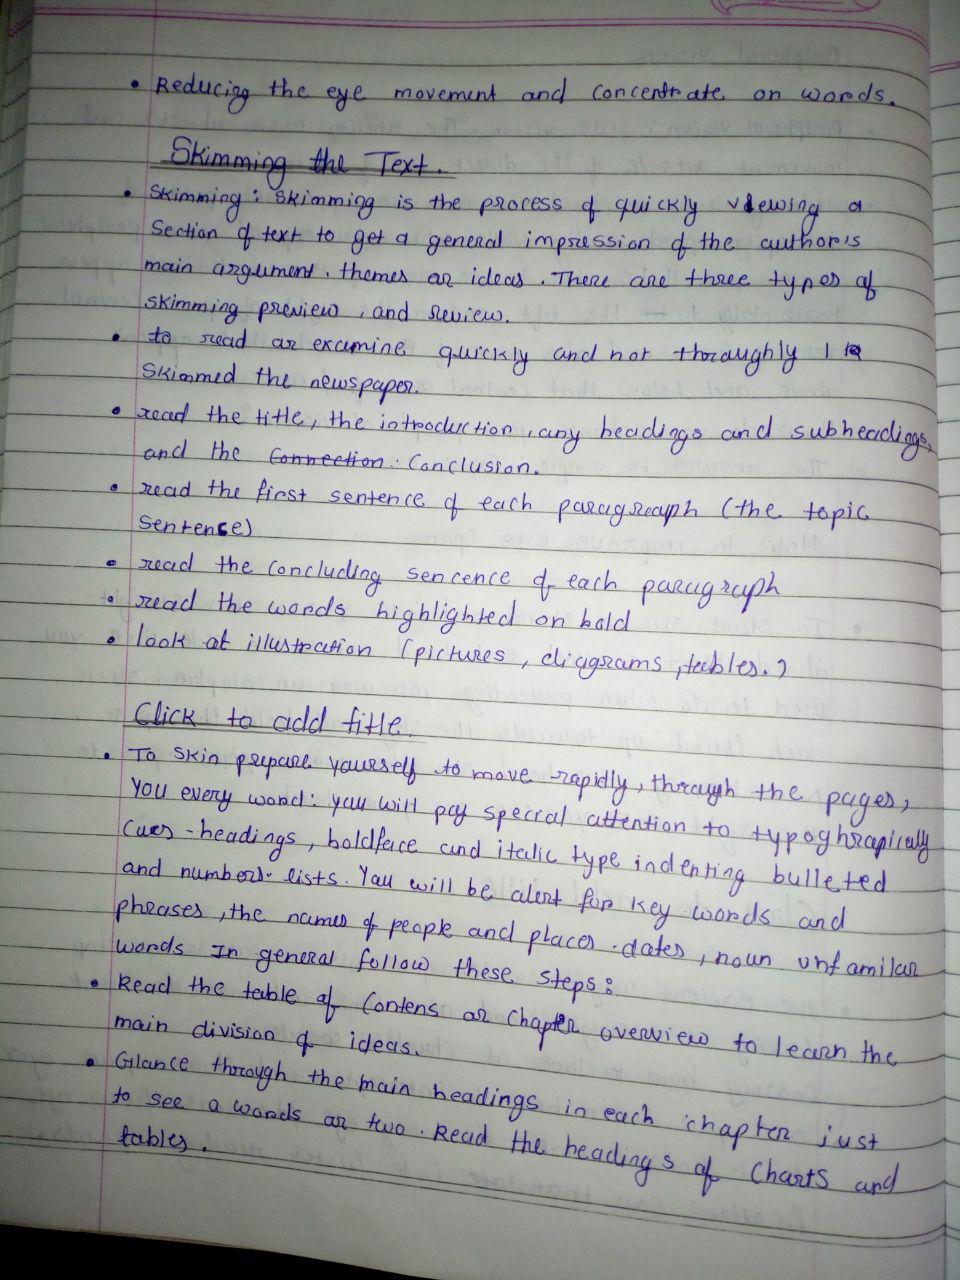 • Reducizg the eye movement and concentrate on words.
Skimming the Text.
• Skimming : Skimming is the process of quickly viewing a
Section of text to get a general impression of the author's
main argument. themes or ideas. There are three types of
skimming preview, and review.
• to read or examine quickly and not thoroughly I
Skimmed the newspaper.
• read the title, the introduction, any headings and subheadings,
and the Connection. Conclusion.
• read the first sentence of each paragraph (the topic
Sentence)
• read the concluding sencence of each paragraph
• read the words highlighted on bold
• look at illustration (pictures, diagrams, tables.)
Click to add title.
• To Skin prepare yourself to move rapidly, through the pages,
You every word: you will pay special attention to typoghrapically
Cues - headings, boldface and italic type indenting bulleted
and numbers. lists. You will be alert for key words and
phrases, the names of people and places. dates, noun unfamilar
words In general follow these steps:
• Read the table of Contens or Chapter overview to learn the
main division of ideas.
• Glance through the main headings in each chapter just
to see a words or two. Read the headings of Charts and
tables.